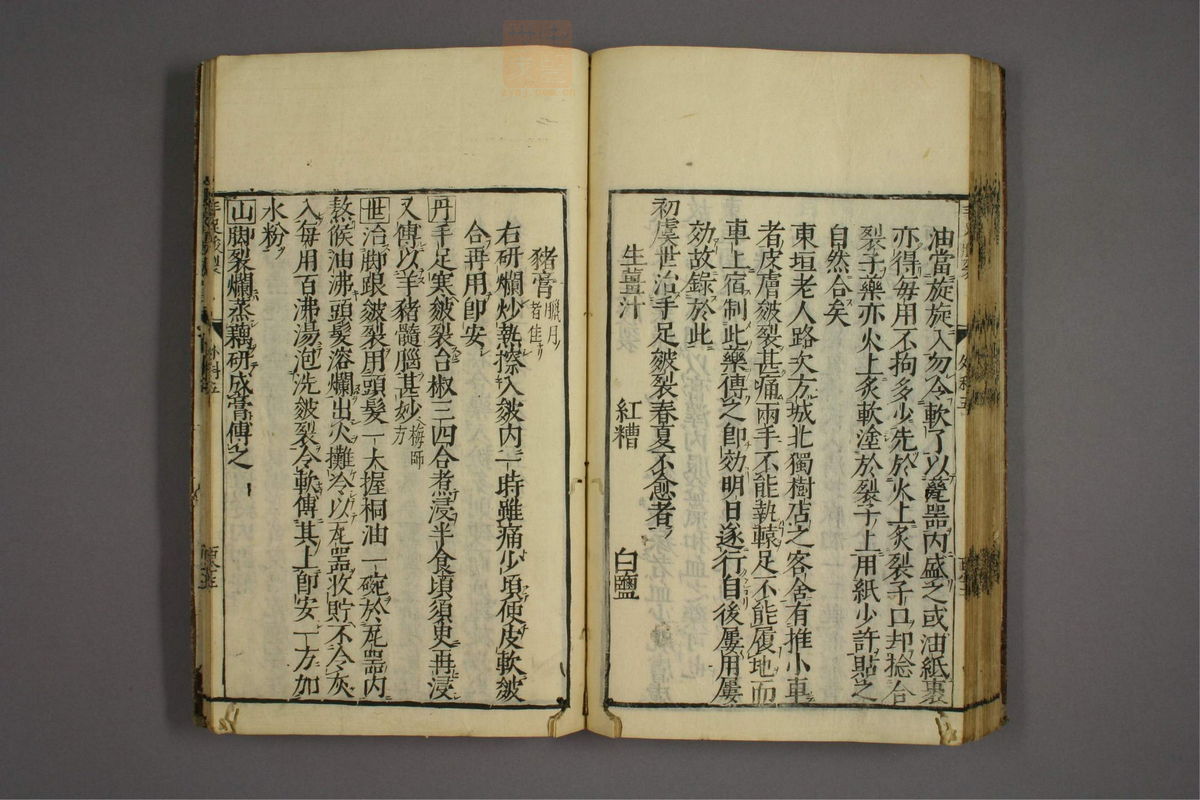 油當旋旋入勿令軟了以甆器內盛之或油紙裹
亦得每用不拘多少先於火上炙裂子口却捻合
裂子藥亦火上炙軟塗於裂子上用紙少許貼之
自然合矣
東垣老人路次方城北獨樹店之客舍有推小車
者皮膚皴裂甚痛兩手不能執轅足不能履地而
車上宿制此藥傅之即効明日遂行自後屢用屢
効故錄於此
初虞世治手足皴裂春夏不愈者
生薑汁 紅糟 白鹽
豬膏臘月者佳
右研爛炒熱擦入皴內一時雖痛少頃便皮軟皴
合再用即安
丹手足寒皴裂台椒三四合煮浸半食頃須臾再浸
又傅以羊豬髓腦甚妙梅師方
世治脚跟皴裂用頭髮一大握桐油一碗於瓦器內
熬候油沸頭髮溶爛出火攤冷以瓦器收貯不令灰
入每用百沸湯泡洗皴裂令軟傅其上即安一方加
水粉
山脚裂爛蒸藕研成膏傅之